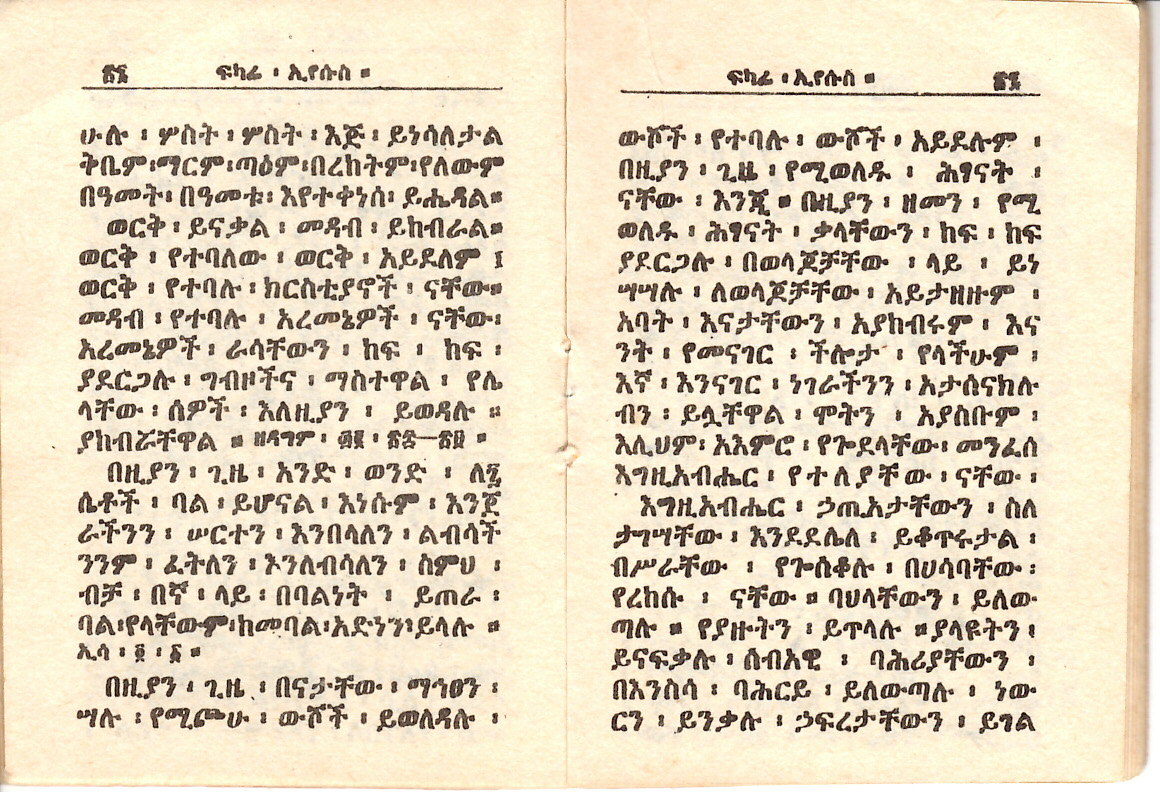 ፳፮ ፍካሬ ፡ ኢየሱስ ።
ሁሉ ፡ ሦስት ፡ ሦስት ፡ እጅ ፡ ይነሳለታል
ቅቤም ፡ ማርም ፡ ጣዕም ፡ በረከትም ፡ የለውም
በዓመት ፡ በዓመቱ ፡ እየተቀነሰ ፡ ይሔዳል ።
ወርቅ ፡ ይናቃል ፡ መዳብ ፡ ይከብራል ።
ወርቅ ፡ የተባለው ፡ ወርቅ ፡ አይደለም ፤
ወርቅ ፡ የተባሉ ፡ ክርስቲያኖች ፡ ናቸው ።
መዳብ ፡ የተባሉ ፡ አረመኔዎች ፡ ናቸው ፡
አረመኔዎች ፡ ራሳቸውን ፡ ከፍ ፡ ከፍ ፡
ያደርጋሉ ፡ ግብዞችና ፡ ማስተዋል ፡ የሌ
ላቸው ፡ ሰዎች ፡ እለዚያን ፡ ይወዳሉ ።
ያከብሯቸዋል ። ዘዳግም ፡
በዚያን ፡ ጊዜ ፡ አንድ ፡ ወንድ ፡ ለ፯
ሴቶች ፡ ባል ፡ ይሆናል ፡ እነሱም ፡ እንጀ
ራችንን ፡ ሠርተን ፡ እንበላለን ፡ ልብሳች
ንንም ፡ ፈትለን ፡ እንለብሳለን ፡ ስምህ ፡
ብቻ ፡ በኛ ፡ ላይ ፡ በባልነት ፡ ይጠራ ፡
ባል ፡ የላቸውም ፡ ከመባል ፡ አድንን ፡ ይላሉ ።
ኢሳ ፡ ፬ ፡ ፩ ።
በዚያን ፡ ጊዜ ፡ በናታቸው ፡ ማኅፀን ፡
ሣሉ ፡ የሚጮሁ ፡ ውሾች ፡ ይወለዳሉ ፡
ፍካሬ ፡ ኢየሱስ ። ፳፯
ውሾች ፡ የተባሉ ፡ ውሾች ፡ አይደሉም ፡
በዚያን ፡ ጊዜ ፡ የሚወለዱ ፡ ሕፃናት ፡
ናቸው ፡ እንጂ ። በዚያን ፡ ዘመን ፡ የሚ
ወለዱ ፡ ሕፃናት ፡ ቃላቸውን ፡ ከፍ ፡ ከፍ
ያደርጋሉ ፡ በወላጆቻቸው ፡ ላይ ፡ ይነ
ሣሣሉ ፡ ለወላጆቻቸው ፡ አይታዘዙም ፡
አባት ፡ እናታቸውን ፡ አያከብሩም ፡ እና
ንት ፡ የመናገር ፡ ችሎታ ፡ የላችሁም ፡
እኛ ፡ እንናገር ፡ ነገራችንን ፡ አታሰናክሉ
ብን ፡ ይሏቸዋል ፡ ሞትን ፡ አያስቡም ፡
እሊህም ፡ አእምሮ ፡ የጐደላቸው ፡ መንፈስ
እግዚአብሔር ፡ የተለያቸው ፡ ናቸው ፡
እግዚአብሔር ፡ ኃጢአታቸውን ፡ ስለ
ታገሣቸው ፡ እንደደሌለ ፡ ይቆጥሩታል ፡
ብሥራቸው ፡ የጐሰቆሉ ፡ በሀሳባቸው ፡
የረከሱ ፡ ናቸው ። ባህላቸውን ፡ ይለው
ጣሉ ። የያዙትን ፡ ይጥላሉ ። ያላዩትን ፡
ይናፍቃሉ ፡ ሰብአዊ ፡ ባሕሪያቸውን ፡
በእንስሳ ፡ ባሕርይ ፡ ይለውጣሉ ፡ ነው
ርን ፡ ይንቃሉ ፡ ኃፍረታቸውን ፡ ይገል